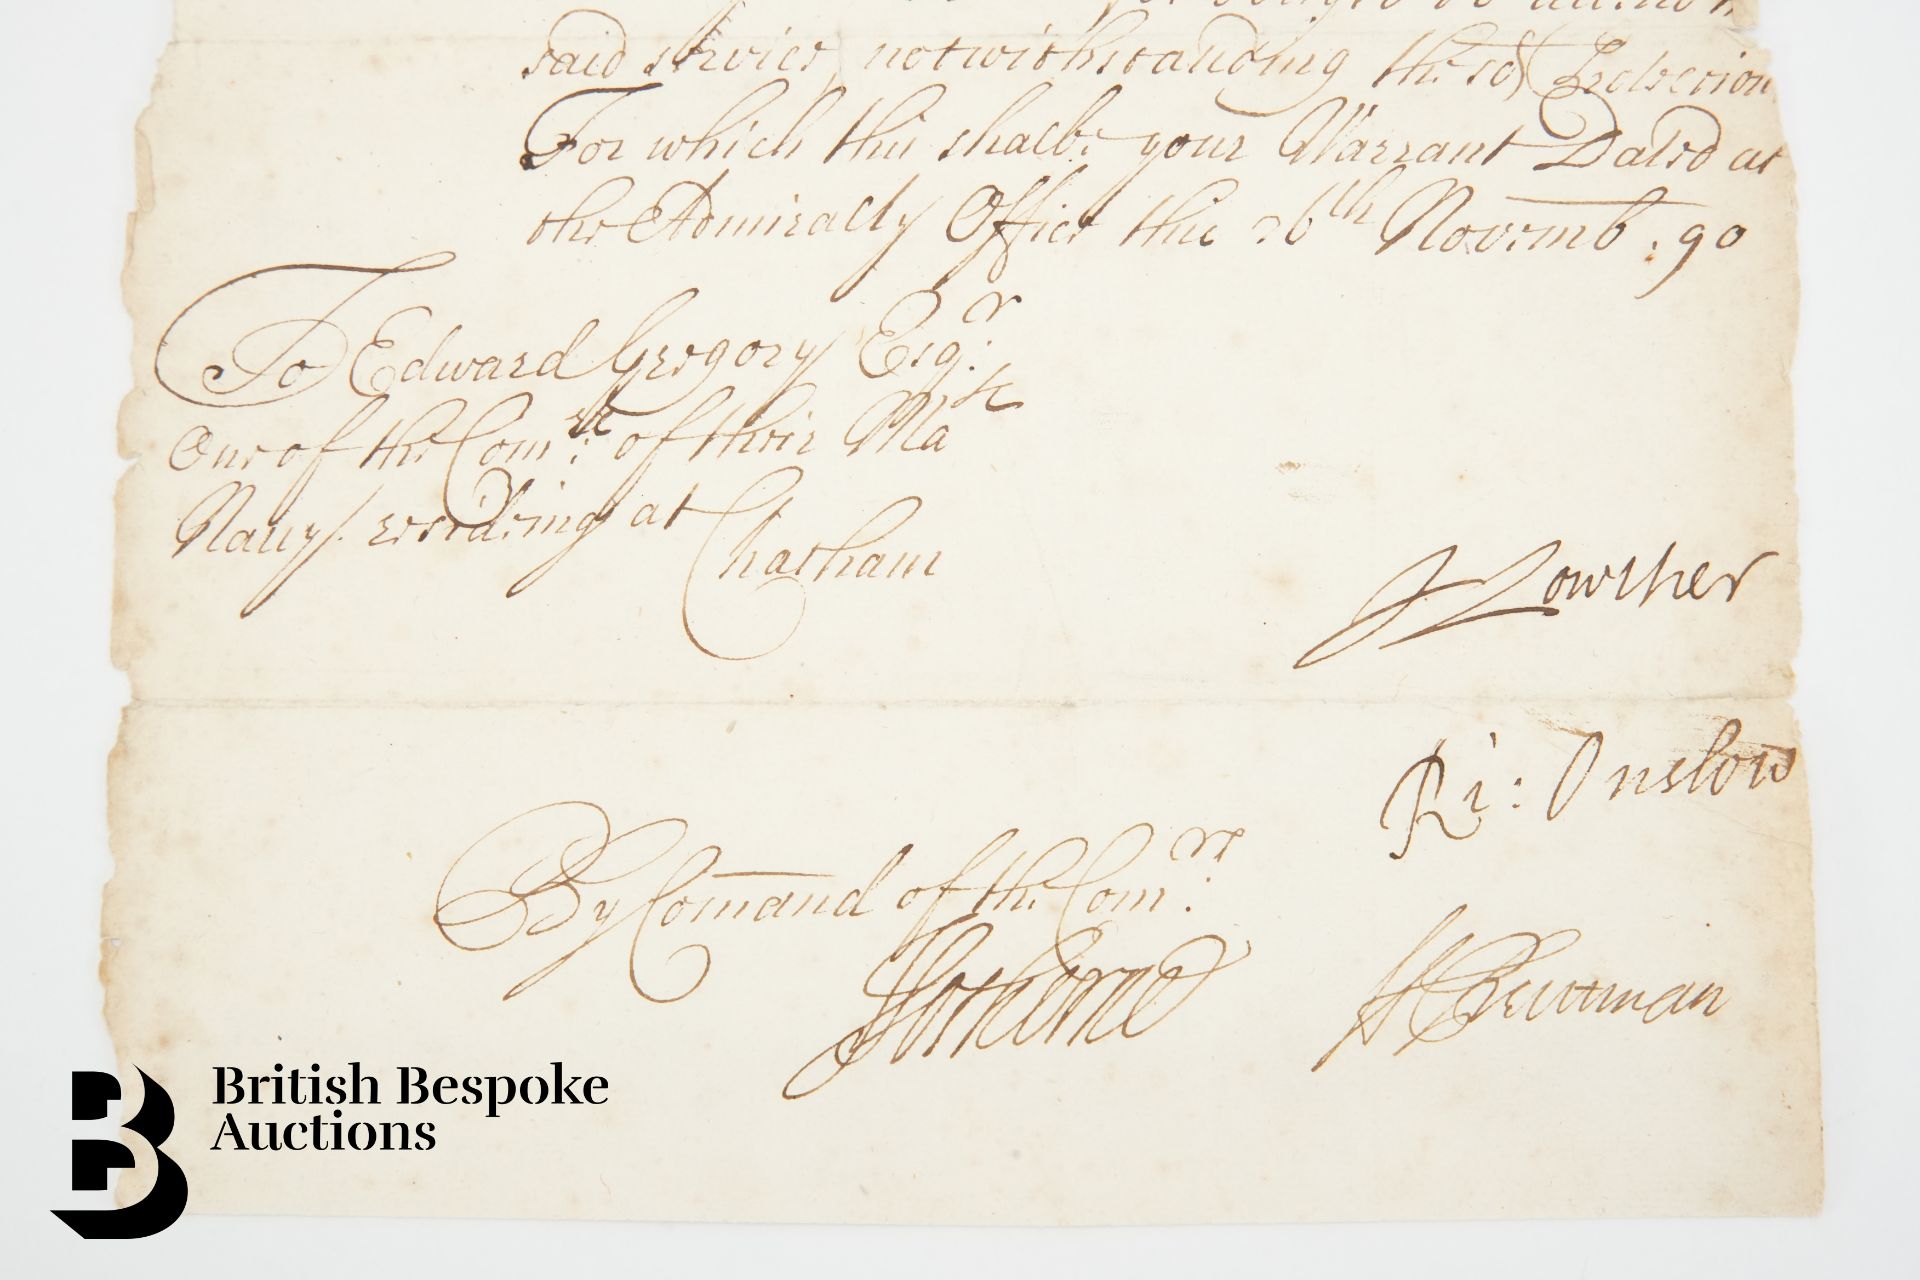 said service, notwithstanding the sd Protection
For which this shalbe your Warrant Dated at
the Admiralty Office this 26th Novemb: 90
To Edward Gregory Esqr:
One of the Comrs: of their Mats
Navy residing at Chatham
J Lowther
Ri: Onslow
By Comand of the Comrs:
British Bespoke
Auctions